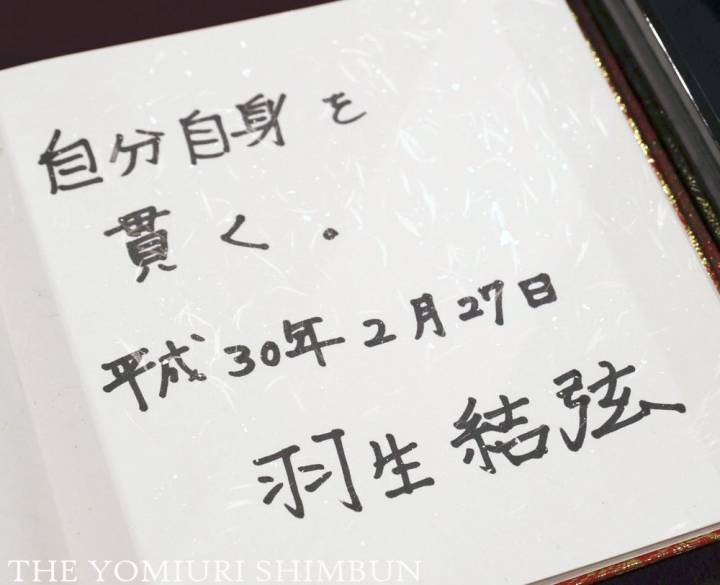 自分自身を
貫く。
平成30年2月27日
羽生結弦
THE YOMIURI SHIMBUN